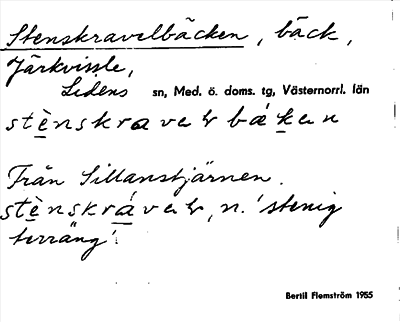 Stenskravelbäcken, bäck,
Järkvissle,
Lidens sn, Med. ö. doms. tg, Västernorrl. län
stènskravaḷ bákan
Från Sillanstjärnen.
stènskrávaḷ, n. 'stenig
terräng'.
Bertil Flemström 1955